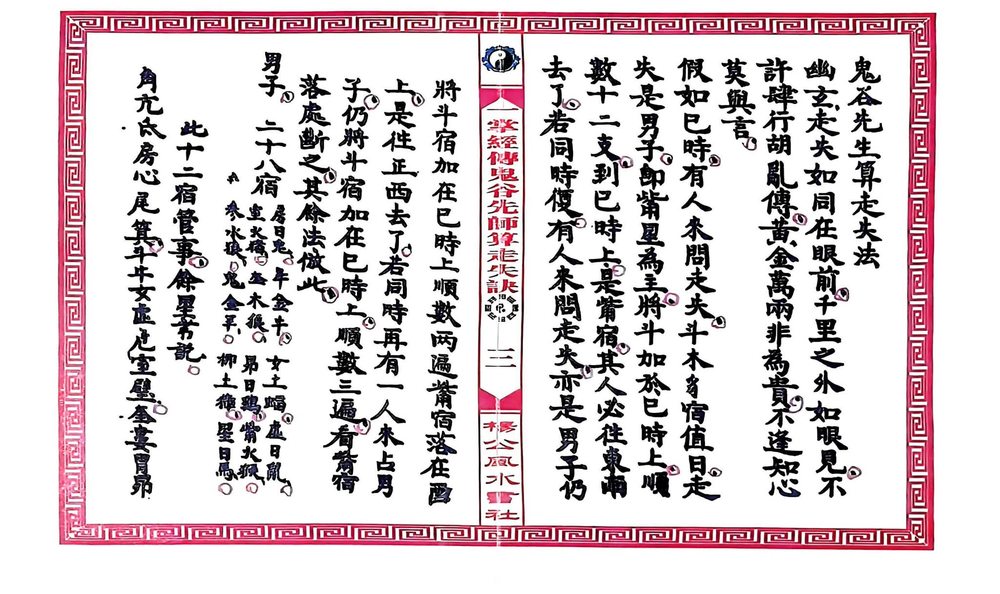 鬼谷先生算走失法
幽玄走失如同在眼前千里之外如眼見不
許肆行胡亂傳黃金萬兩非為貴不逢知心
莫與言
假如巳時有人來問走失斗木豸宿值日走
失是男子即觜星為主將斗加於巳時上順
數十二支到巳時上是觜宿其人必往東南
去了若同時復有人來問走失亦是男子仍
一掌經傳鬼谷先師算走失訣
三
楊公風水書社
將斗宿加在巳時上順數兩遍觜宿落在酉
上是徃正西去了若同時再有一人來占男
子仍將斗宿加在巳時上順數三遍看觜宿
落處斷之其餘法倣此
男子 二十八宿 房日兔 牛金牛 女土蝠 虛日鼠
室火猪 奎木狼 昴日鷄 觜火猴
參水猿 鬼金羊 柳土獐 星日馬
此十二宿管事餘星另說
角亢氐房心尾箕斗牛女虛危室壁奎婁胃昴